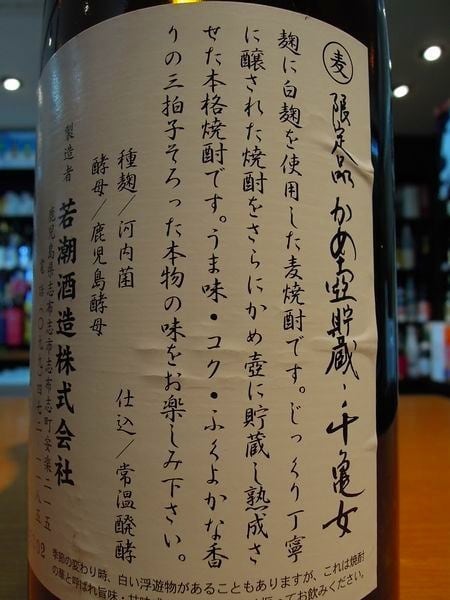 麦 限定品 かめ壺貯蔵・千亀女
麹に白麹を使用した麦焼酎です。じっくり丁寧
に醸された焼酎をさらにかめ壺に貯蔵し熟成さ
せた本格焼酎です。うま味・コク・ふくよかな香
りの三拍子そろった本物の味をお楽しみ下さい。
種麹/河内菌 仕込/常温醗酵
酵母/鹿児島酵母
製造者 若潮酒造株式会社
鹿児島県志布志市志布志町安楽二一五
季節の変わり時、白い浮遊物があることもありますが、これは焼酎
の華と呼ばれ旨味・甘味
ってお飲みください。